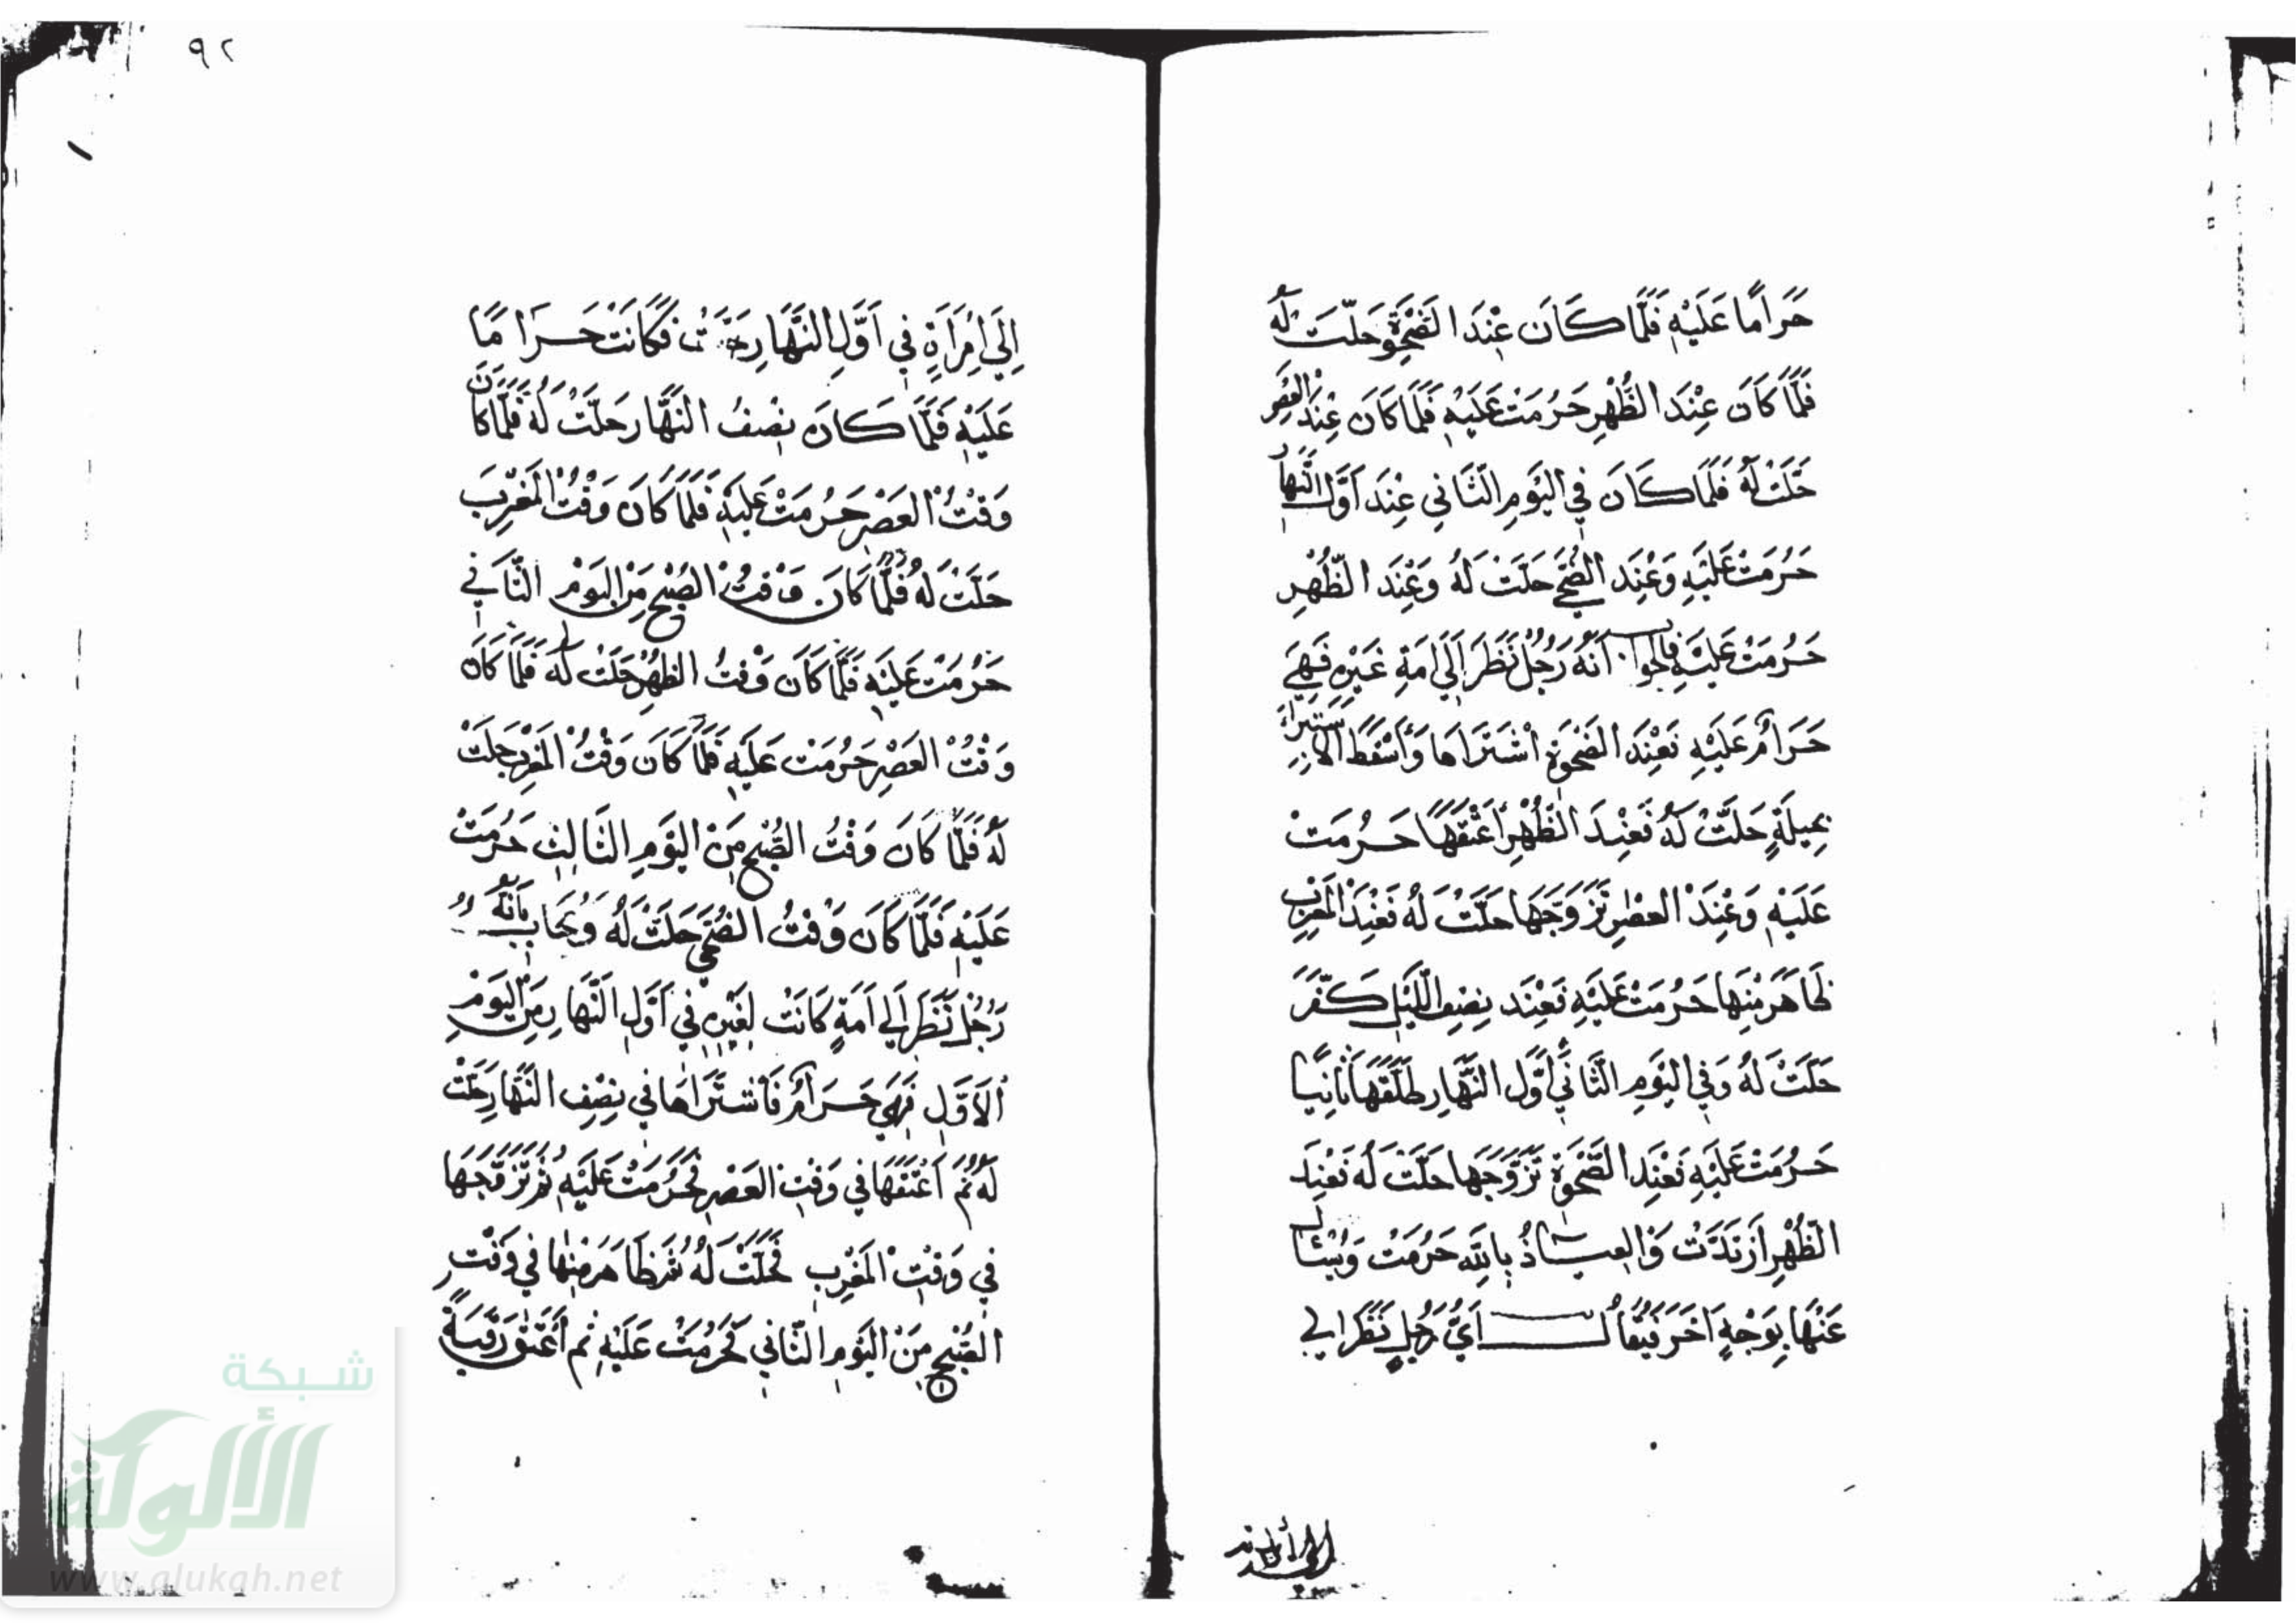 حَرَامًا عَلَيْهِ فَلَمَّا كَانَ عِنْدَ الضَّحْوَةِ حَلَّتْ لَهُ
فَلَمَّا كَانَ عِنْدَ الظُّهْرِ حَرُمَتْ عَلَيْهِ فَلَمَّا كَانَ عِنْدَ الْعَصْرِ
حَلَّتْ لَهُ فَلَمَّا كَانَ فِي الْيَوْمِ الثَّانِي عِنْدَ أَوَّلِ النَّهَارِ
حَرُمَتْ عَلَيْهِ وَعِنْدَ الضُّحَى حَلَّتْ لَهُ وَعِنْدَ الظُّهْرِ
حَرُمَتْ عَلَيْهِ فَالْجَوَابُ أَنَّهُ رَجُلٌ نَظَرَ إِلَى أَمَةِ غَيْرِهِ فَهِيَ
حَرَامٌ عَلَيْهِ فَعِنْدَ الضَّحْوَةِ اشْتَرَاهَا وَأَسْقَطَ الِاسْتِبْرَاءَ
بِحِيلَةٍ حَلَّتْ لَهُ فَعِنْدَ الظُّهْرِ أَعْتَقَهَا حَرُمَتْ
عَلَيْهِ وَعِنْدَ الْعَصْرِ تَزَوَّجَهَا حَلَّتْ لَهُ فَعِنْدَ الْمَغْرِبِ
ظَاهَرَ مِنْهَا حَرُمَتْ عَلَيْهِ فَعِنْدَ نِصْفِ اللَّيْلِ كَفَّرَ
حَلَّتْ لَهُ وَفِي الْيَوْمِ الثَّانِي أَوَّلَ النَّهَارِ طَلَّقَهَا ثَانِيًا
حَرُمَتْ عَلَيْهِ فَعِنْدَ الضَّحْوَةِ تَزَوَّجَهَا حَلَّتْ لَهُ فَعِنْدَ
الظُّهْرِ ارْتَدَّتْ وَالْعِيَاذُ بِاللَّهِ حَرُمَتْ وَيُسْئَلُ
عَنْهَا بِوَجْهٍ آخَرَ فَيُقَالُ أَيُّ رَجُلٍ نَظَرَ إِلَى
٩٢
إِلَى امْرَأَةٍ فِي أَوَّلِ النَّهَارِ فَكَانَتْ حَرَامًا
عَلَيْهِ فَلَمَّا كَانَ نِصْفُ النَّهَارِ حَلَّتْ لَهُ فَلَمَّا كَانَ
وَقْتُ الْعَصْرِ حَرُمَتْ عَلَيْهِ فَلَمَّا كَانَ وَقْتُ الْمَغْرِبِ
حَلَّتْ لَهُ فَلَمَّا كَانَ وَقْتُ الصُّبْحِ مِنَ الْيَوْمِ الثَّانِي
حَرُمَتْ عَلَيْهِ فَلَمَّا كَانَ وَقْتُ الظُّهْرِ حَلَّتْ لَهُ فَلَمَّا كَانَ
وَقْتُ الْعَصْرِ حَرُمَتْ عَلَيْهِ فَلَمَّا كَانَ وَقْتُ الْمَغْرِبِ حَلَّتْ
لَهُ فَلَمَّا كَانَ وَقْتُ الصُّبْحِ مِنَ الْيَوْمِ الثَّالِثِ حَرُمَتْ
عَلَيْهِ فَلَمَّا كَانَ وَقْتُ الضُّحَى حَلَّتْ لَهُ وَيُجَابُ بِأَنَّهُ
رَجُلٌ نَظَرَ إِلَى أَمَةٍ كَانَتْ لِغَيْرِهِ فِي أَوَّلِ النَّهَارِ مِنَ الْيَوْمِ
الْأَوَّلِ فَهِيَ حَرَامٌ فَاشْتَرَاهَا فِي نِصْفِ النَّهَارِ حَلَّتْ
لَهُ ثُمَّ أَعْتَقَهَا فِي وَقْتِ الْعَصْرِ فَحَرُمَتْ عَلَيْهِ ثُمَّ تَزَوَّجَهَا
فِي وَقْتِ الْمَغْرِبِ فَحَلَّتْ لَهُ ثُمَّ ظَاهَرَ مِنْهَا فِي وَقْتِ
الصُّبْحِ مِنَ الْيَوْمِ الثَّانِي فَحَرُمَتْ عَلَيْهِ ثُمَّ أَعْتَقَ رَقَبَةً
شبكة
الألوكة
www.alukah.net